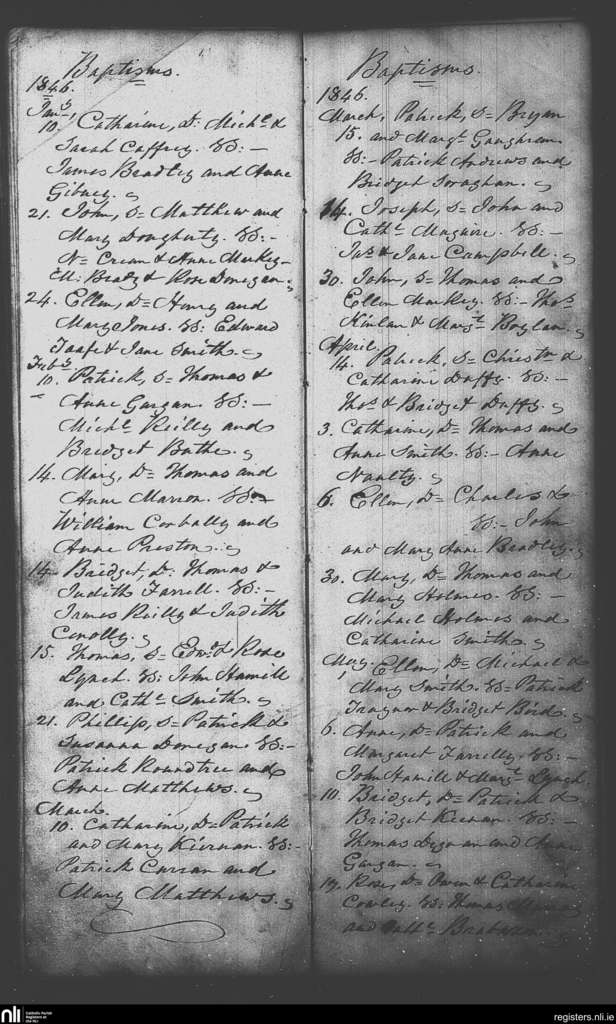 Baptisms.
1846.
Jany
10. Catharine, D. Michl &
Sarah Caffrey. SS: —
James Bradley and Anne
Gibney.
21. John, S= Matthew and
Mary Dougherty. SS: —
Ns Cream & Anne Markey —
M: Brady & Rose Donegan.
24. Ellen, D= Henry and
Mary Jones. SS: Edward
Taafe & Jane Smith.
Feby
10. Patrick, S= Thomas &
Anne Gargan. SS: —
Michl Reilly and
Bredget Bathe.
14. Mary, D= Thomas and
Anne Marron. SS
William Corbally and
Anne Preston.
14. Bridget, D: Thomas &
Judith Farrell. SS: —
James Reilly & Judith
Conolly.
15. Thomas, S= Edwd & Rose
Lynch. SS: John Hamill
and Cathe Smith.
21. Phillip, S= Patrick &
Susanna Donegan SS: —
Patrick Roundtree and
Anne Matthews.
March
10. Catharine, D= Patrick
and Mary Kiernan. SS: —
Patrick Curran and
Mary Matthews.
Baptisms.
1846.
March, Patrick, S= Bryan
15. and Margt Gaughran
SS: — Patrick Andrews and
Bridget Soraghan.
14. Joseph, S= John and
Cathe Maguire. SS: —
Jas & Jane Campbell.
30. John, S= Thomas and
Ellen Markey. SS: — Thos
Kinlan & Margt Boylan.
April
14. Patrick, S= Christr &
Catharine Duffy. SS: —
Thos & Bridget Duffy.
3. Catharine, D= Thomas and
Anne Smith. SS: — Anne
Nanlty.
6. Ellen, D= Charles &
SS: — John
and Mary Anne Bradley.
30. Mary, D= Thomas and
Mary Holmes. SS: —
Michael Holmes and
Catharine Smith.
May. Ellen, D= Michael &
1 Mary Smith. SS= Patrick
& Bridget Bird.
6. Anne, D= Patrick and
Margaret Farrelly. SS: —
John Hamill & Margt Lynch.
10. Bridget, D= Patrick &
Bridget Kiernan. SS: —
Thomas and Anne
Gargan.
Rose, D= Owen & Catharine
Cowley. SS: Thomas
and Cathe Brabazon.
nli
Catholic Parish
Registers at
the NLI
registers.nli.ie